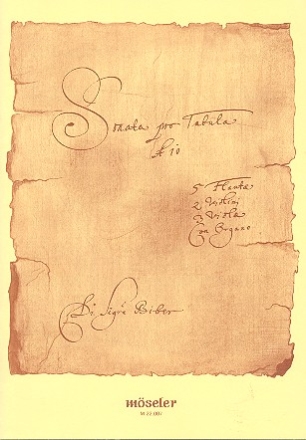 Sonata pro Tabula
A 10
5 Flauta
2 Violini
3 Viola
Con Organo
Di Sigre Biber
möseler